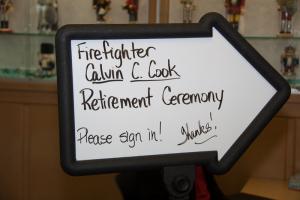 Firefighter
Calvin C. Cook
Retirement Ceremony
Please sign in! Thanks!